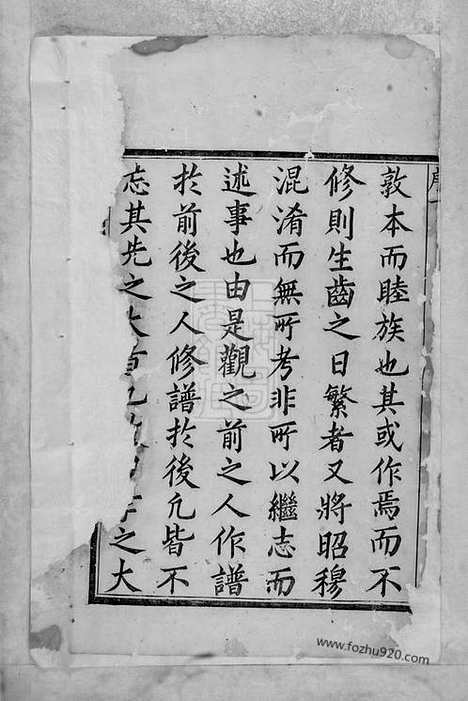 敦本而睦族也其或作焉而不
修則生齒之日繁者又將昭穆
混淆而無所考非所以繼志而
述事也由是觀之前之人作譜
於前後之人修譜於後凢皆不
忘其先之大
之大
www.fozhu920.com